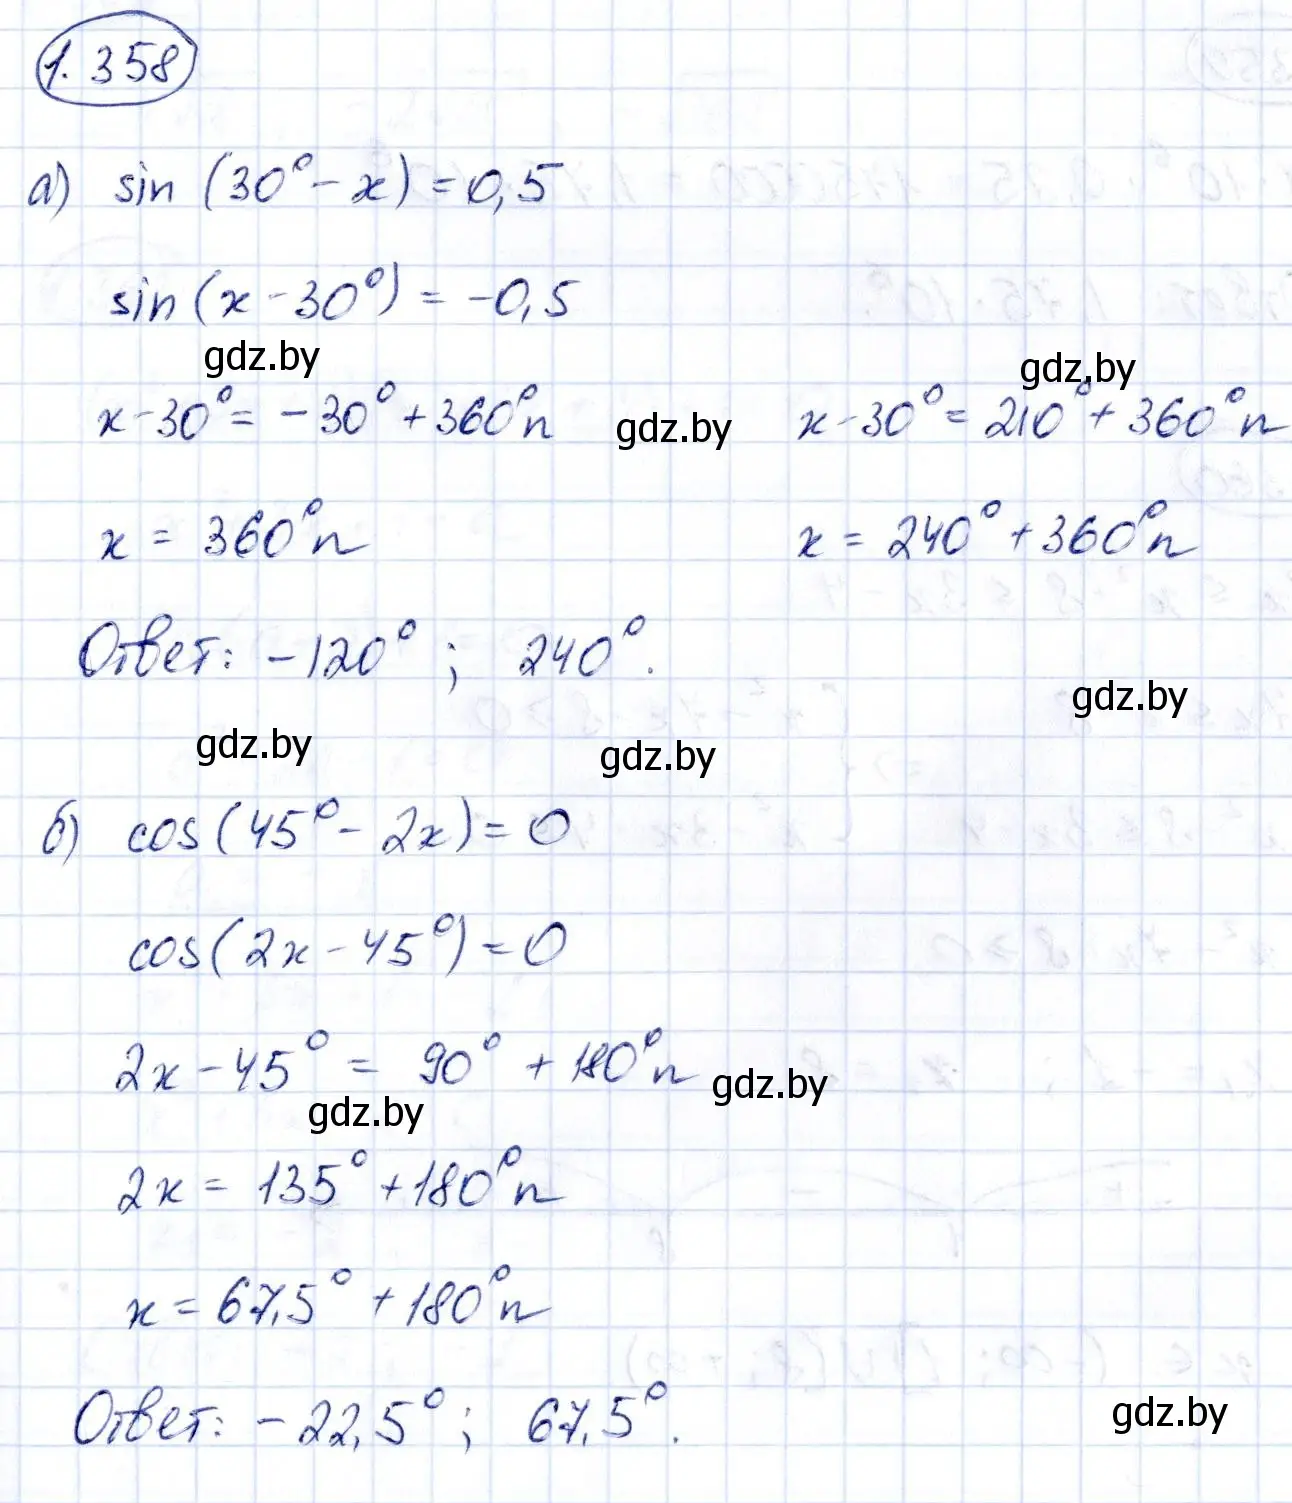 1.358
а) sin (30° - x) = 0,5
sin (x - 30°) = -0,5
gdz.by gdz.by
x - 30° = -30° + 360°n gdz.by x - 30° = 210° + 360°n
x = 360°n x = 240° + 360°n
Ответ: -120° ; 240°.
gdz.by
gdz.by gdz.by
б) cos (45° - 2x) = 0
cos (2x - 45°) = 0
2x - 45° = 90° + 180°n gdz.by
gdz.by
2x = 135° + 180°n
x = 67,5° + 180°n
Ответ: -22,5° ; 67,5°.
gdz.by